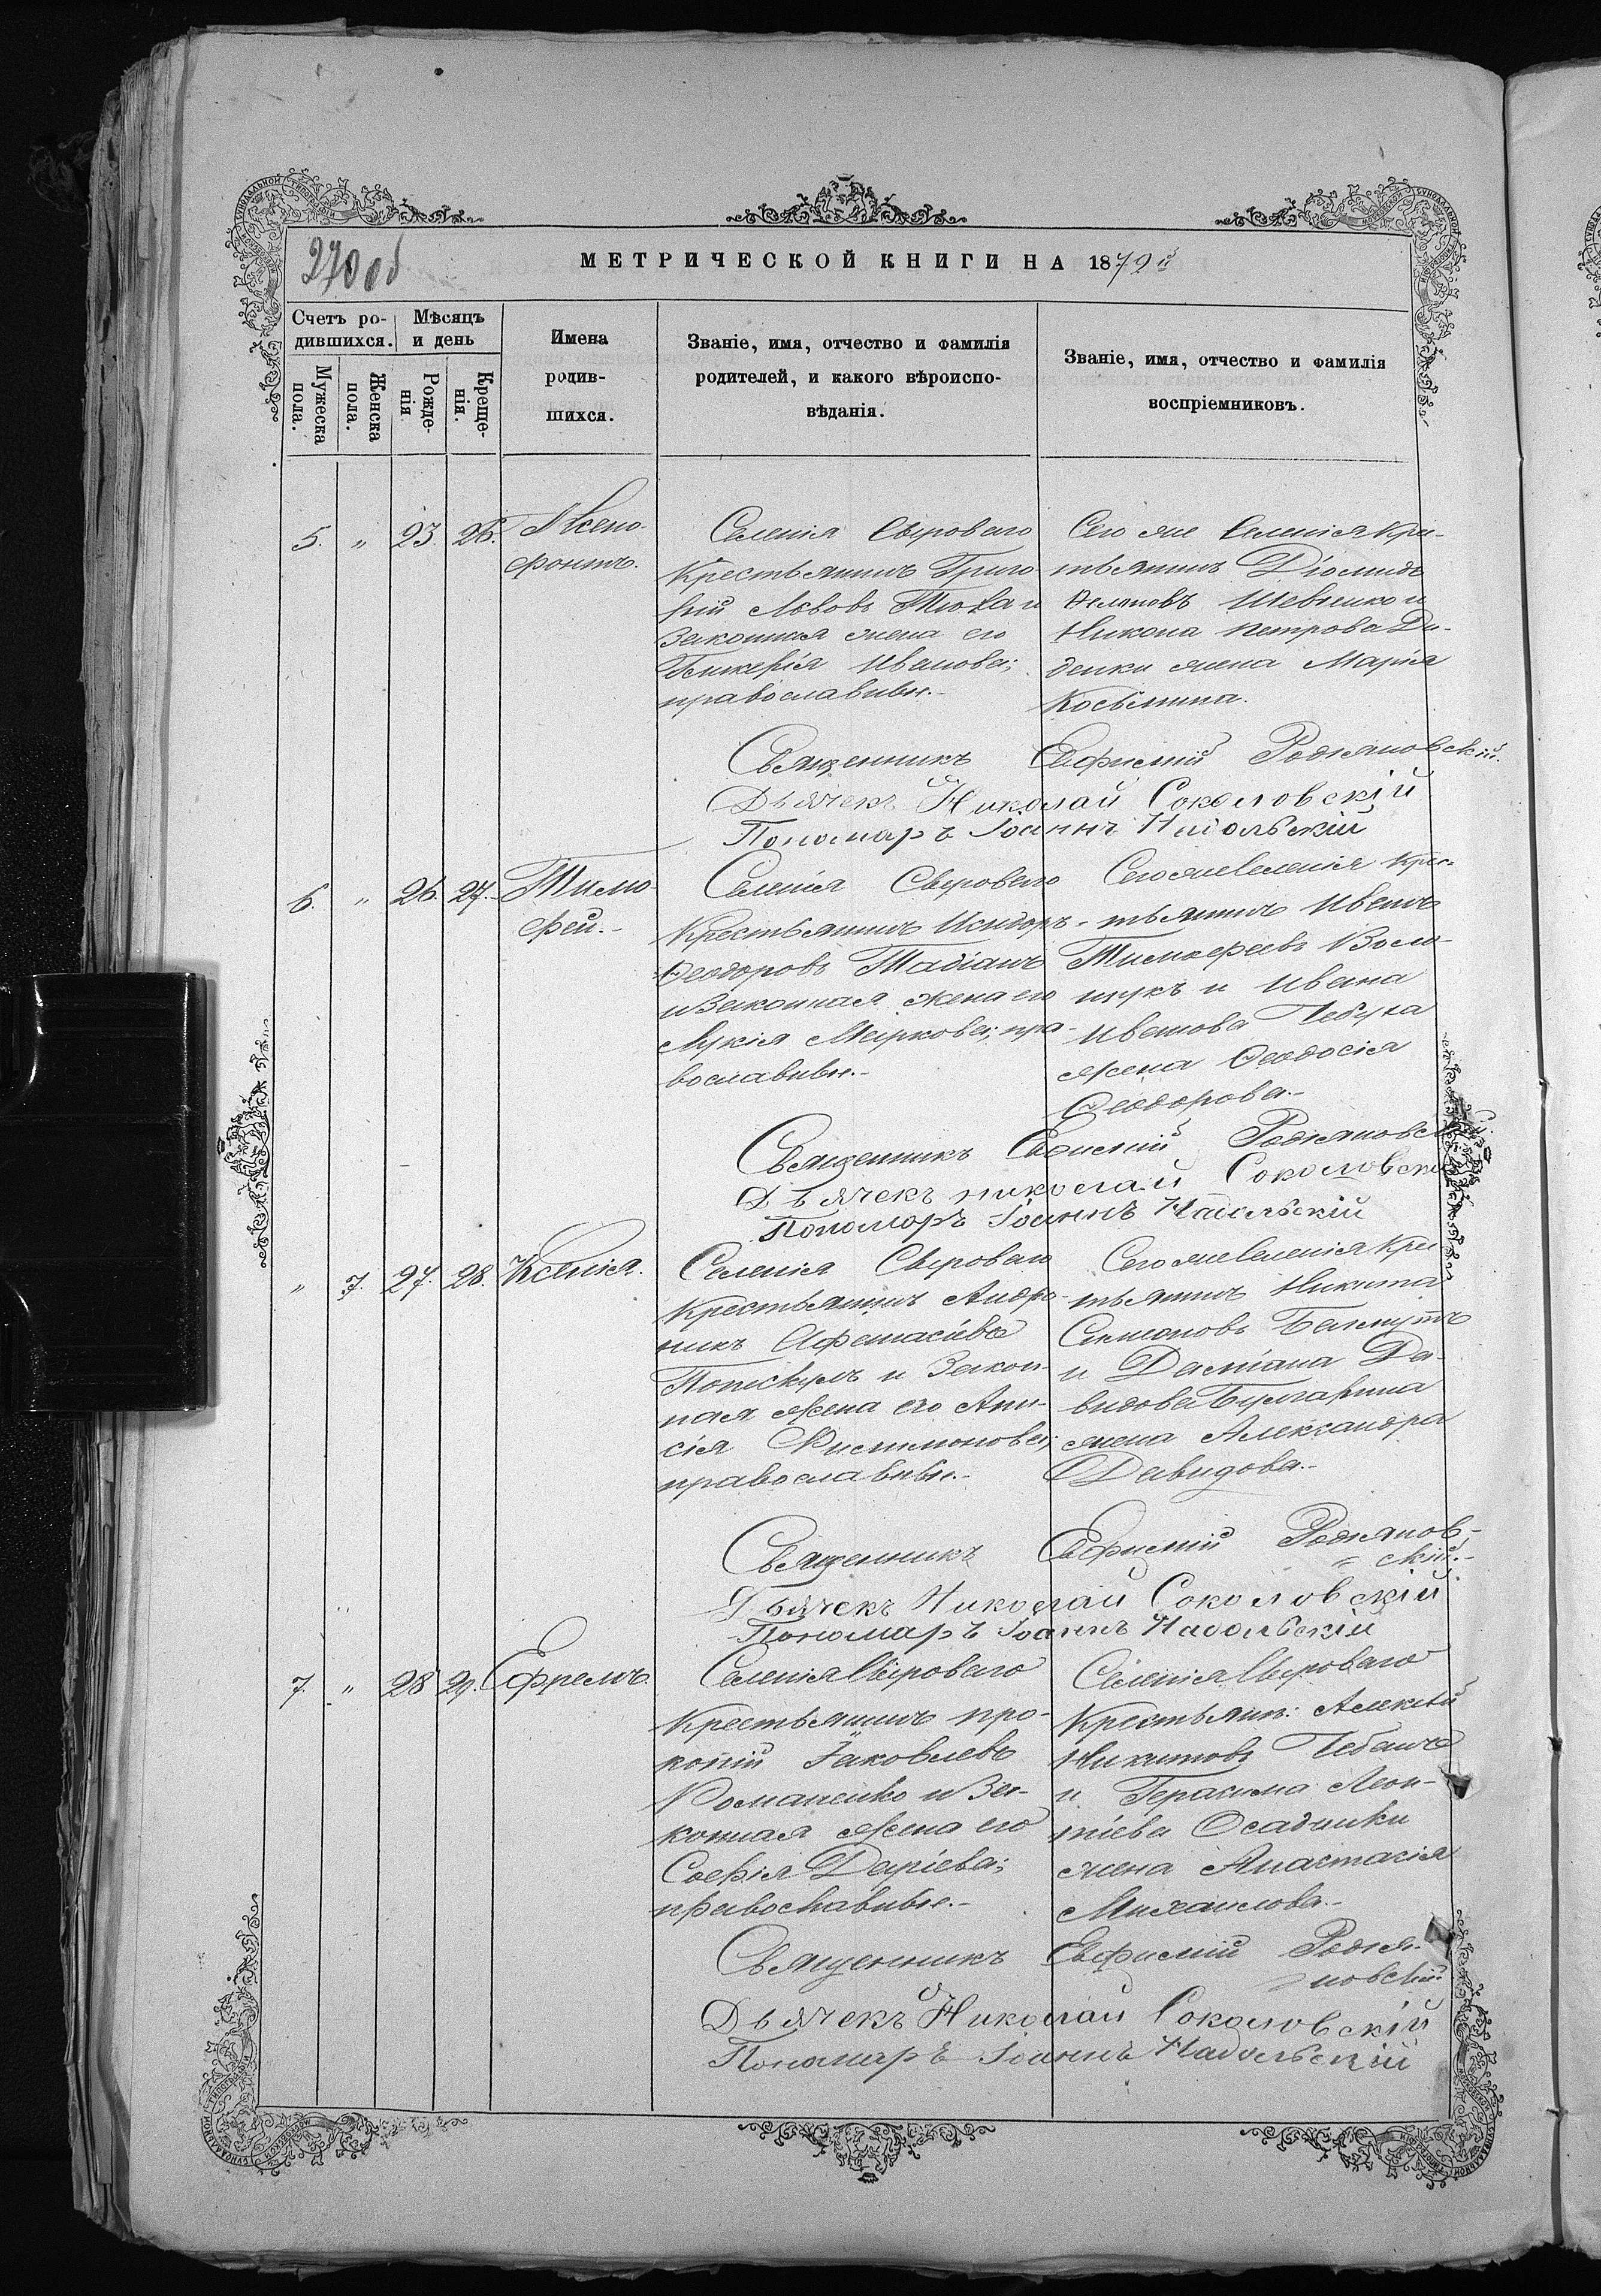 270 об
МЕТРИЧЕСКОЙ КНИГИ НА 1879й
Счетъ ро-
дившихся.
Мѣсяцъ
и день
Имена
родив-
шихся.
Званіе, имя, отчество и фамилія
родителей, и какого вѣроиспо-
вѣданія.
Званіе, имя, отчество и фамилія
воспріемниковъ.
Мужеска
пола.
Женска
пола.
Рожде-
нія
Креще-
нія.
5. " 23. 26. Ксено-
фонтъ.
Селенія Сыроваго
Крестьянинъ Григо
рій Львовъ и
Законная жена его
Гликерія Иванова;
православныи.-
Сего же Селенія Кре-
стьянинъ Діомидъ
Шевченко и
Никона Петрова Ди-
денки жена Марія
Косьмина.
Священникъ Евфимій Родзяновскій.
Дьячекъ Николай Соколовскій
Пономарь Іоаннъ Надольскій
6. " 26. 27. Тимо-
фей.-
Селенія Сыроваго
Крестьянинъ Исидоръ
Феодоровъ Табіанъ
и Законная жена его
Лукія Маркова; пра-
вославныи.-
Сего же Селенія Крес-
тьянинъ Иванъ
Тимофеевъ Воло-
щукъ и Ивана
Иванова
жена Феодосія
Феодорова.-
Священникъ Евфимій Родзяновскій.
Дьячекъ николай Соколовскій
Пономарь Іоаннъ Надольскій
" 7. 27. 28. Ксенія.
Селенія Сыроваго
Крестьянинъ Андро-
никъ Афанасіевъ
и Закон-
ная жена его Ани-
сія Филимонова;
православныи.-
Сего же Селенія Кре
стьянинъ Никита
Симеоновъ
и Даміана Да-
видова Булгарина
жена Александра
Давидова.-
Священникъ Евфимій Родзянов-
скій.-
Дьячекъ Николай Соколовскій
Пономарь Іоаннъ Надольскій
7. " 28 29. Ефремъ.
Селенія Сыроваго
Крестьянинъ про-
копій Іаковлевъ
Романенко и За-
конная жена его
Софія Даріева;
православныи.-
Селенія Сыроваго
Крестьянин: Алексѣй
Никитовъ Чебанъ
и Герасима Леон-
тіева Осадчики
жена Анастасія
Михаилова.-
Священникъ Евфимій Родзя-
новскій
Дьячекъ Николай Соколовскій
Пономарь Іоаннъ Надольскій